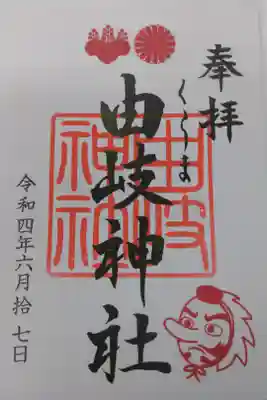 奉拝
くらま
由岐神社
由岐神社
令和四年六月拾七日